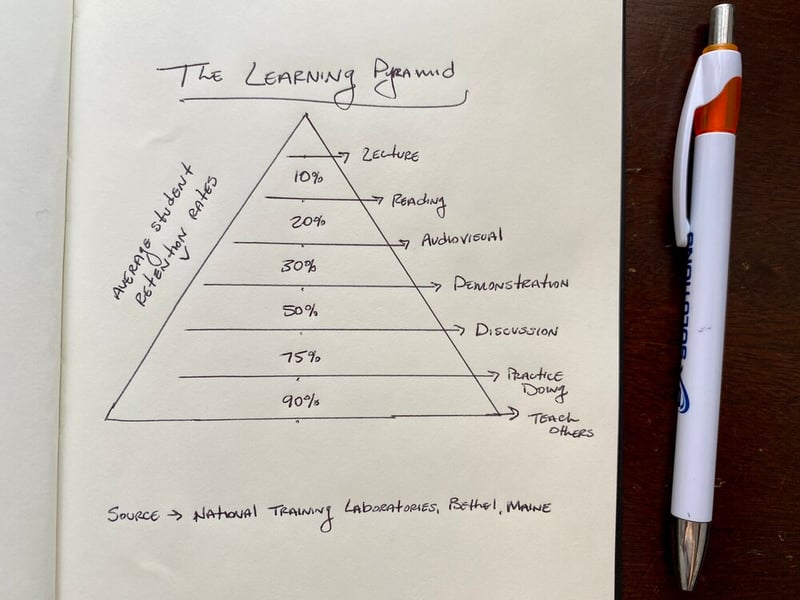 The Learning Pyramid
Average Student
Retention Rates
Lecture
10%
Reading
20%
Audiovisual
30%
Demonstration
50%
Discussion
75%
Practice
Doing
90%
Teach
Others
Source → National Training Laboratories, Bethel, Maine
SOLUTIONS